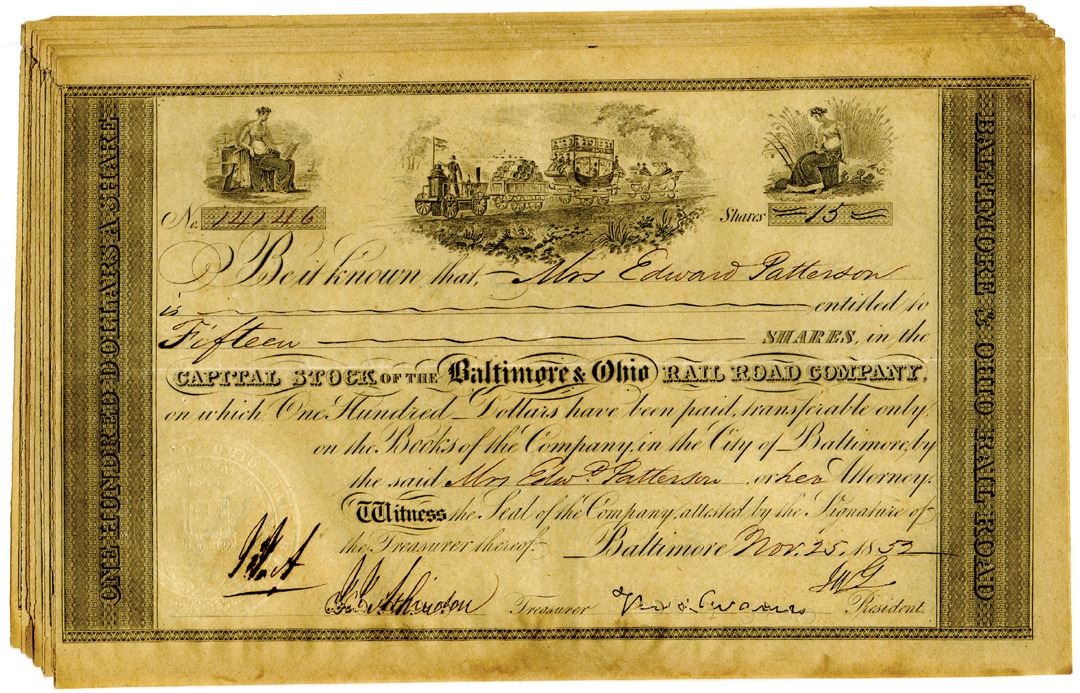 ONE HUNDRED DOLLARS A SHARE
No. 14146
Shares 15
Be it known that, Mrs Edward Patterson
is entitled to
Fifteen SHARES, in the
CAPITAL STOCK OF THE Baltimore & Ohio RAIL ROAD COMPANY,
on which One Hundred Dollars have been paid, transferable only,
on the Books of the Company, in the City of Baltimore, by
the said Mrs Edwd Patterson or her Attorney.
Witness the Seal of the Company, attested by the Signature of
the Treasurer thereof. Baltimore Nov. 25, 1852
Treasurer President
BALTIMORE & OHIO RAIL ROAD